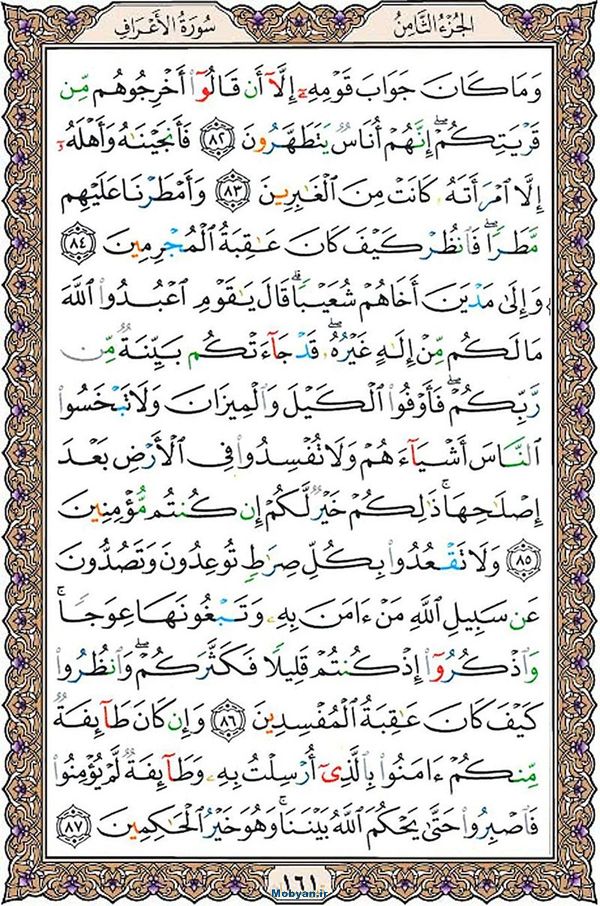 الجُزءُ الثَّامِنُ
سُورَةُ الأَعۡرَافِ
وَمَا كَانَ جَوَابَ قَوۡمِهِۦٓ إِلَّآ أَن قَالُوٓاْ أَخۡرِجُوهُم مِّن
قَرۡيَتِكُمۡۖ إِنَّهُمۡ أُنَاسٞ يَتَطَهَّرُونَ ٨٢ فَأَنجَيۡنَٰهُ وَأَهۡلَهُۥٓ
إِلَّا ٱمۡرَأَتَهُۥ كَانَتۡ مِنَ ٱلۡغَٰبِرِينَ ٨٣ وَأَمۡطَرۡنَا عَلَيۡهِم
مَّطَرٗاۖ فَٱنظُرۡ كَيۡفَ كَانَ عَٰقِبَةُ ٱلۡمُجۡرِمِينَ ٨٤
وَإِلَىٰ مَدۡيَنَ أَخَاهُمۡ شُعَيۡبٗاۚ قَالَ يَٰقَوۡمِ ٱعۡبُدُواْ ٱللَّهَ
مَا لَكُم مِّنۡ إِلَٰهٍ غَيۡرُهُۥۖ قَدۡ جَآءَتۡكُم بَيِّنَةٞ مِّن
رَّبِّكُمۡۖ فَأَوۡفُواْ ٱلۡكَيۡلَ وَٱلۡمِيزَانَ وَلَا تَبۡخَسُواْ
ٱلنَّاسَ أَشۡيَآءَهُمۡ وَلَا تُفۡسِدُواْ فِي ٱلۡأَرۡضِ بَعۡدَ
إِصۡلَٰحِهَاۚ ذَٰلِكُمۡ خَيۡرٞ لَّكُمۡ إِن كُنتُم مُّؤۡمِنِينَ
٨٥ وَلَا تَقۡعُدُواْ بِكُلِّ صِرَٰطٖ تُوعِدُونَ وَتَصُدُّونَ
عَن سَبِيلِ ٱللَّهِ مَنۡ ءَامَنَ بِهِۦ وَتَبۡغُونَهَا عِوَجٗاۚ
وَٱذۡكُرُوٓاْ إِذۡ كُنتُمۡ قَلِيلٗا فَكَثَّرَكُمۡۖ وَٱنظُرُواْ
كَيۡفَ كَانَ عَٰقِبَةُ ٱلۡمُفۡسِدِينَ ٨٦ وَإِن كَانَ طَآئِفَةٞ
مِّنكُمۡ ءَامَنُواْ بِٱلَّذِيٓ أُرۡسِلۡتُ بِهِۦ وَطَآئِفَةٞ لَّمۡ يُؤۡمِنُواْ
فَٱصۡبِرُواْ حَتَّىٰ يَحۡكُمَ ٱللَّهُ بَيۡنَنَاۚ وَهُوَ خَيۡرُ ٱلۡحَٰكِمِينَ ٨٧
١٦١
Mobyan.ir